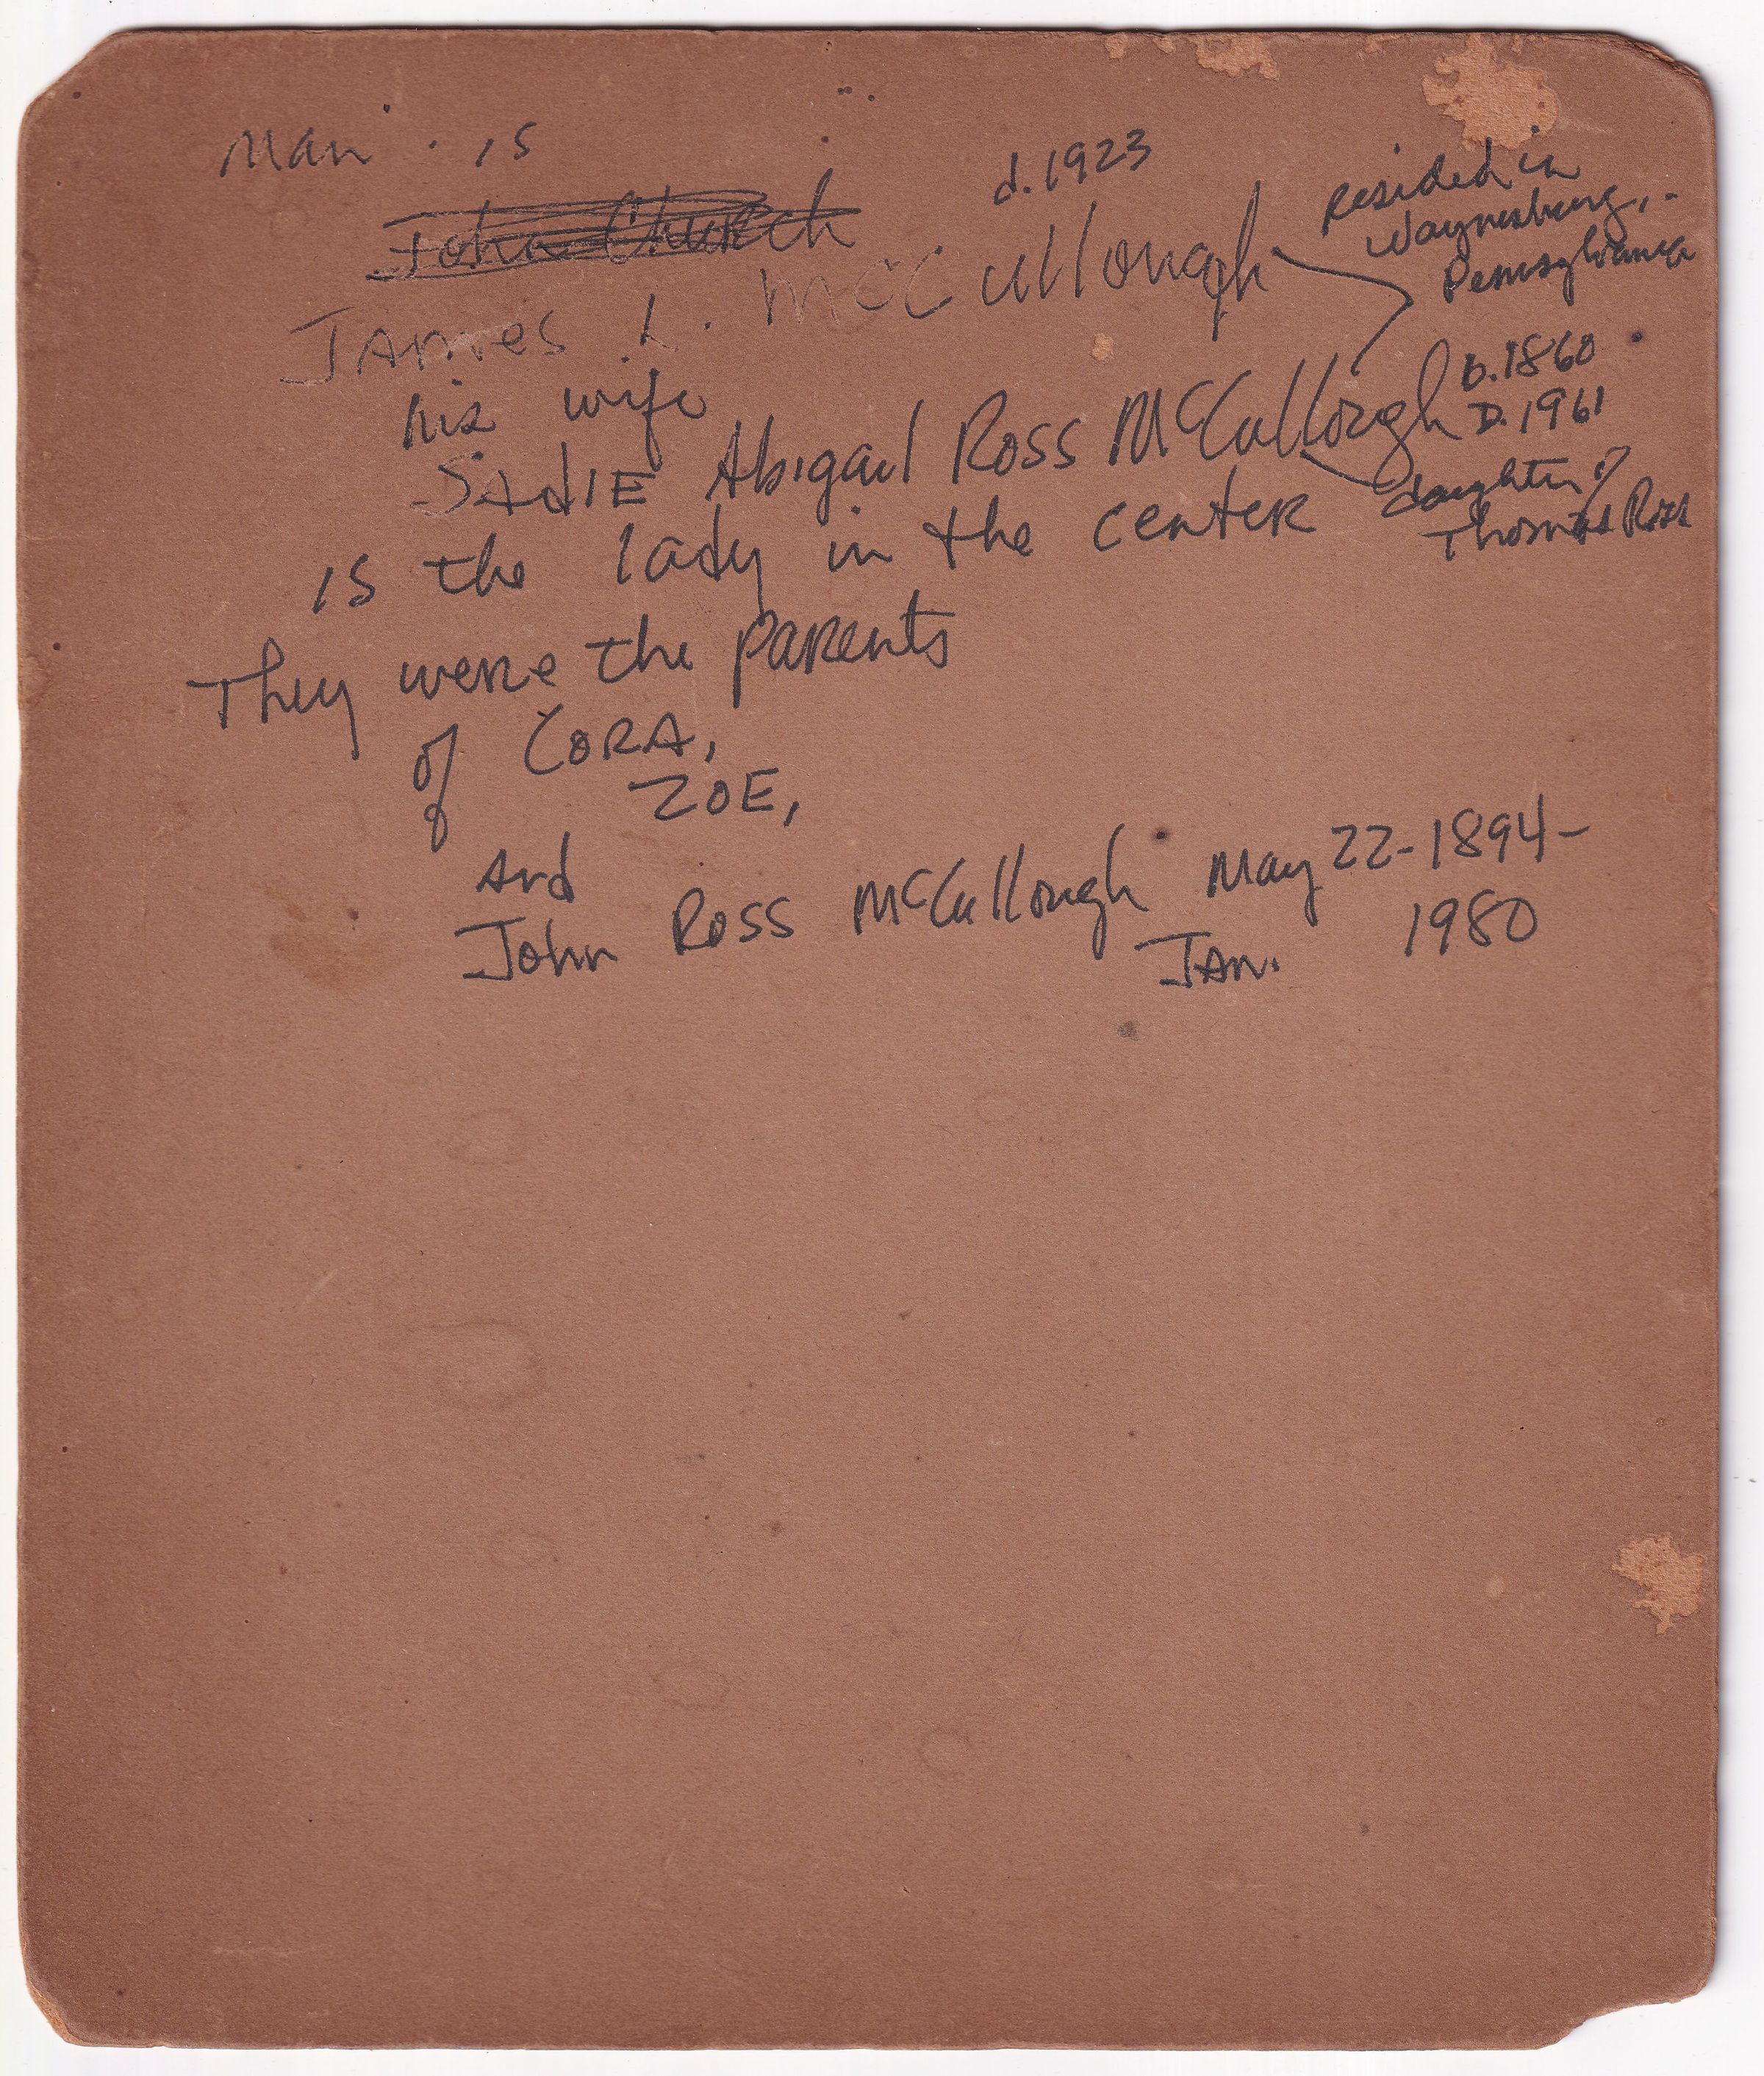 Man is
John Church
d. 1923
James L. McCullough
Resided in
Waynesburg,
Pennsylvania
his wife
Sadie Abigail Ross McCullough
b. 1860
D. 1961
daughter of
Thomas Ross
is the lady in the center
They were the parents
of Cora,
Zoe,
And
John Ross McCullough May 22-1894-
Jan. 1980